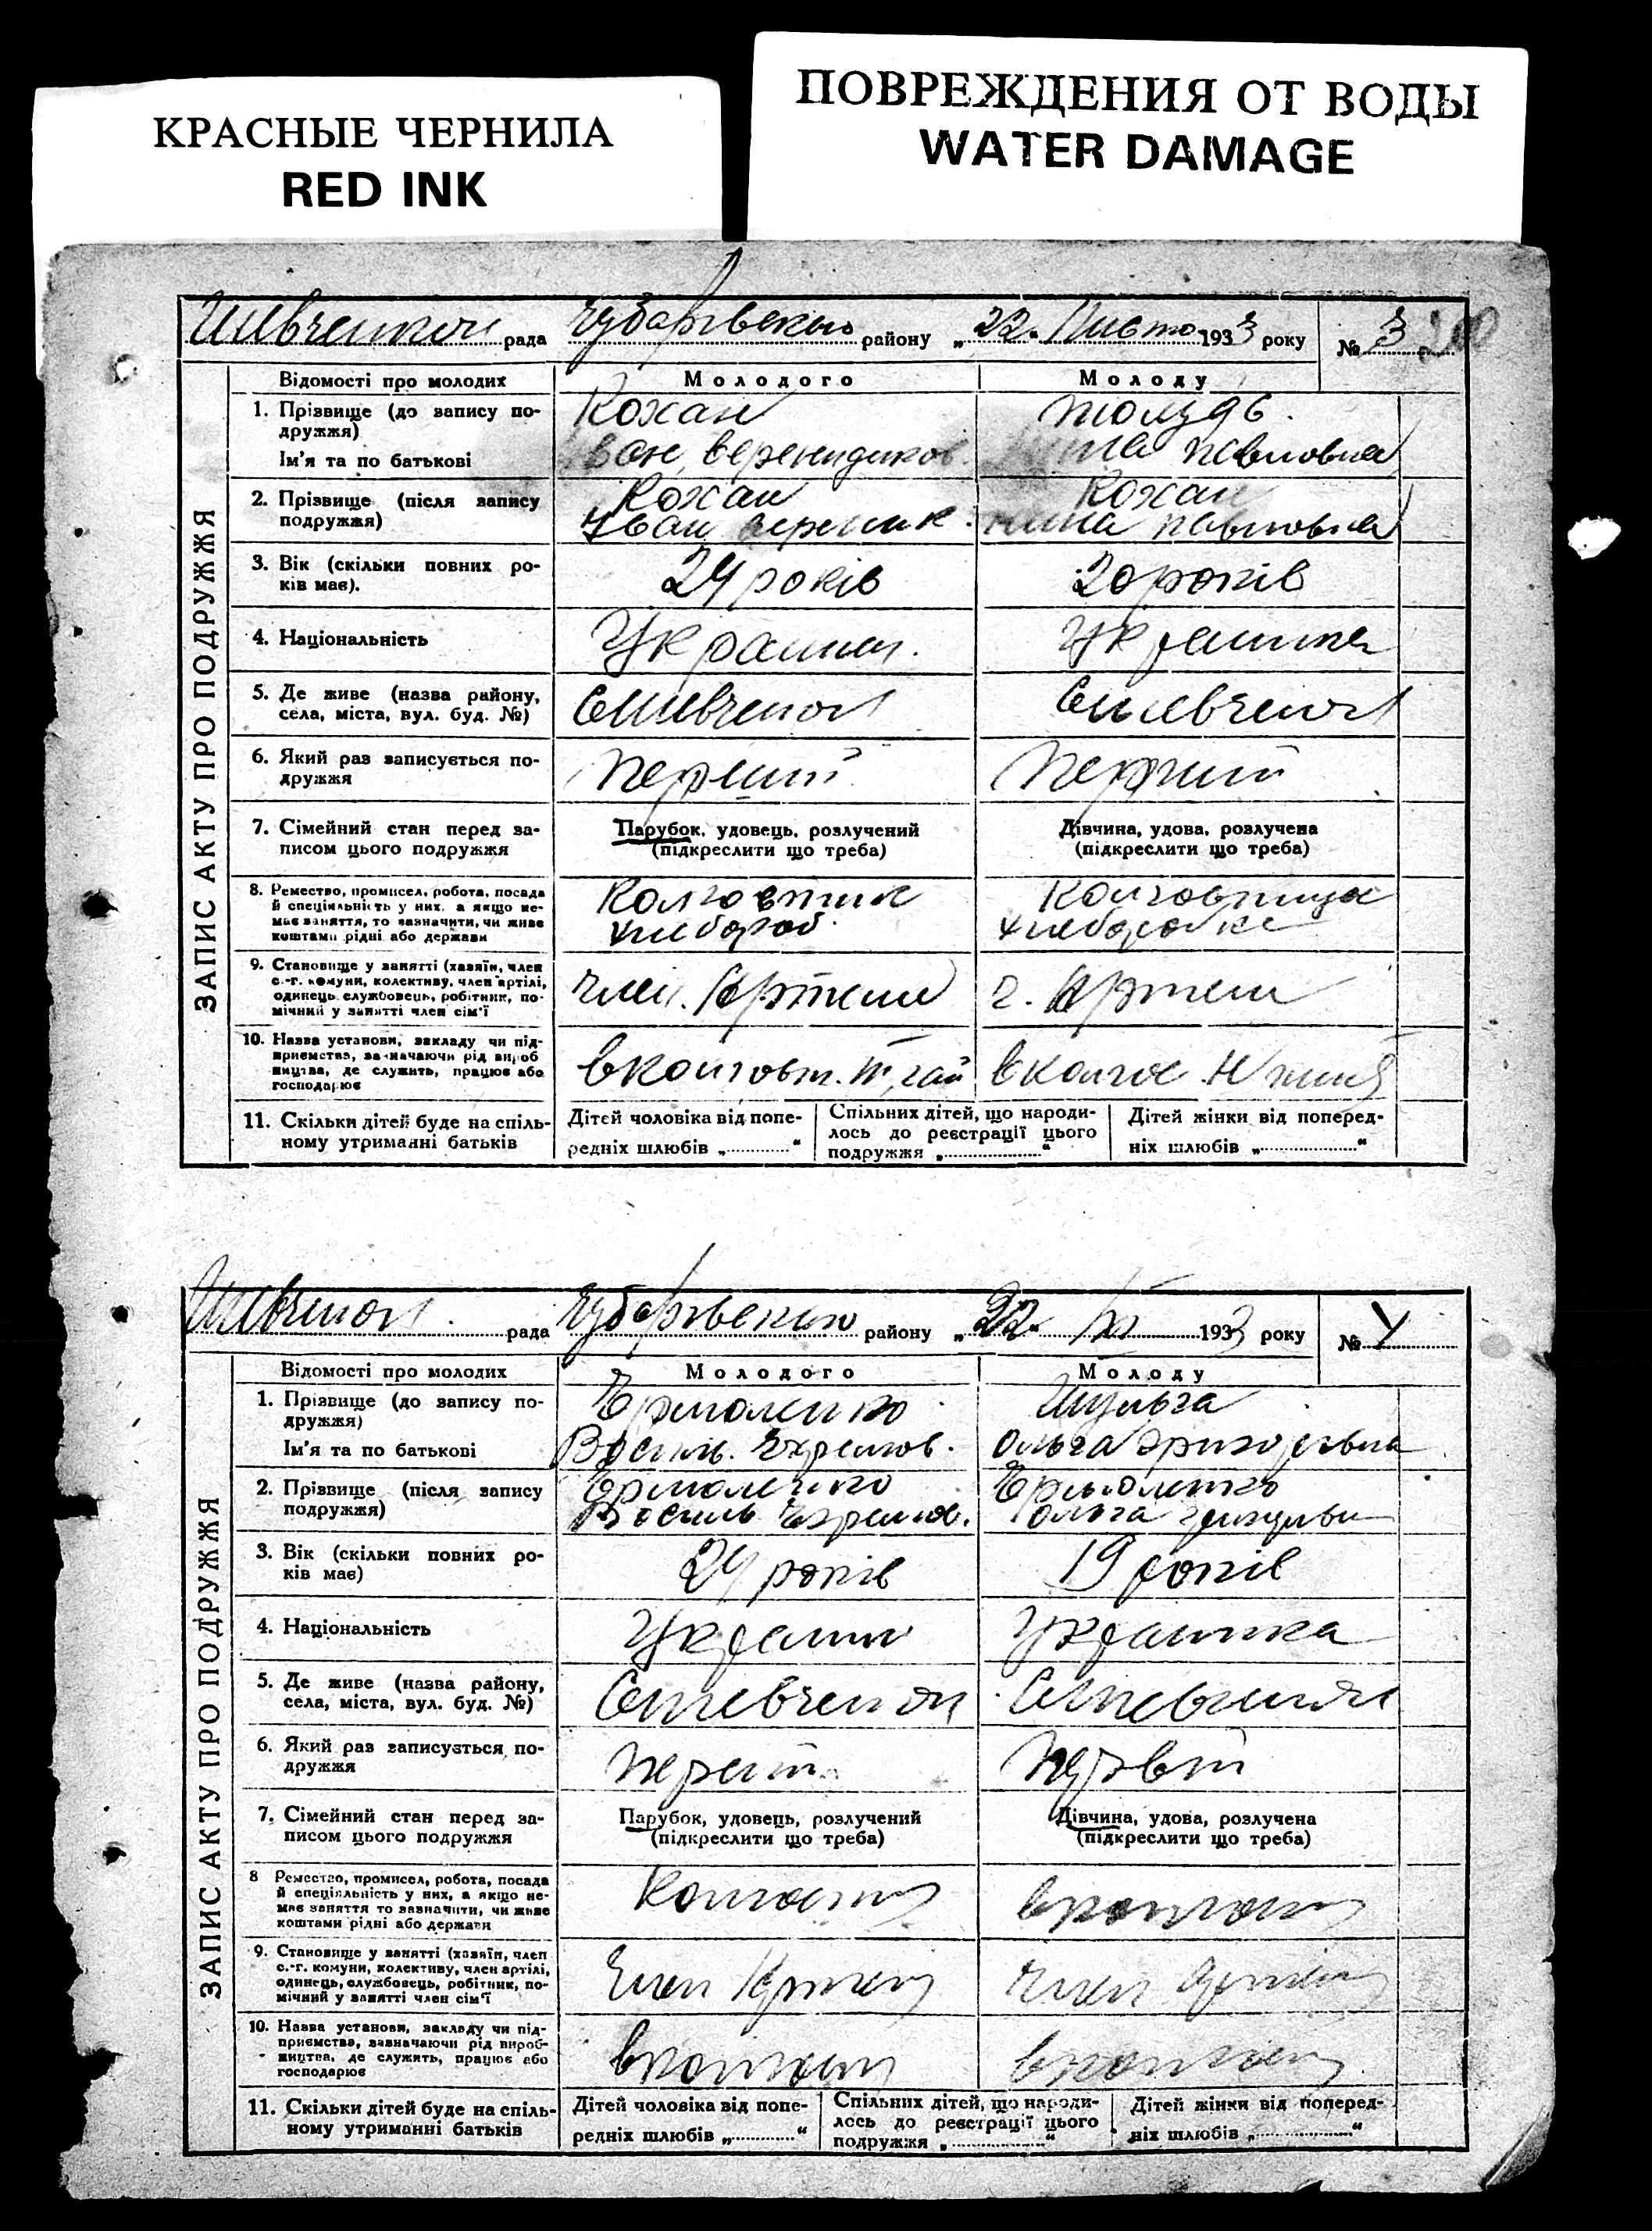 КРАСНЫЕ ЧЕРНИЛА
RED INK
ПОВРЕЖДЕНИЯ ОТ ВОДЫ
WATER DAMAGE
рада Чубарівского району „22“ 1933 року № 3
ЗАПИС АКТУ ПРО ПОДРУЖЖЯ
Відомості про молодих
Молодого
Молоду
1. Прізвище (до запису по-
дружжя)
Ім'я та по батькові
Кохан
Іван
Павловна
2. Прізвище (після запису
подружжя)
Кохан
Іван
Кохан
Павловна
3. Вік (скільки повних ро-
ків має).
24 років
20 років
4. Національність
Украинец
Украинка
5. Де живе (назва району,
села, міста, вул. буд. №)
6. Який раз записується по-
дружжя
Перший
Перший
7. Сімейний стан перед за-
писом цього подружжя
Парубок, удовець, розлучений
(підкреслити що треба)
Дівчина, удова, розлучена
(підкреслити що треба)
8. Ремество, промисел, робота, посада
й спеціяльність у них, а якщо не-
має заняття, то зазначити, чи живе
коштами рідні або держави
Колгоспник
хлебороб
Колгоспница
хлеборобка
9. Становище у занятті (хазяїн, член
с.-г. комуни, колективу, член артілі,
одинець службовець, робітник, по-
мічний у занятті член сім'ї
член. Артели
ч. Артели
10. Назва установи, закладу чи під-
приємства, зазначаючи рід вироб
ництва, де служить, працює або
господарює
11. Скільки дітей буде на спіль-
ному утриманні батьків
Дітей чоловіка від попе-
редніх шлюбів „ “
Спільних дітей, що народи-
лось до реєстрації цього
подружжя „ “
Дітей жінки від поперед-
ніх шлюбів „ “
рада Чубарівского району „22“ XI 1933 року № 4
ЗАПИС АКТУ ПРО ПОДРУЖЖЯ
Відомості про молодих
Молодого
Молоду
1. Прізвище (до запису по-
дружжя)
Ім'я та по батькові
Ермоленко
Василь Ефремов.
Шульга
Ольга Григорівна
2. Прізвище (після запису
подружжя)
Ермоленко
Василь Ефремов.
Ермоленко
Ольга
3. Вік (скільки повних ро-
ків має)
24 років
19 років
4. Національність
Украинец
Украинка
5. Де живе (назва району,
села, міста, вул. буд. №)
6. Який раз записується по-
дружжя
Перший
7. Сімейний стан перед за-
писом цього подружжя
Парубок, удовець, розлучений
(підкреслити що треба)
Дівчина, удова, розлучена
(підкреслити що треба)
8 Ремество, промисел, робота, посада
й спеціяльність у них, а якщо не-
має заняття то зазначити, чи живе
коштами рідні або держави
9. Становище у занятті (хазяїн, член
с.-г. комуни, колективу, член артілі,
одинець, службовець, робітник, по-
мічний у занятті член сім'ї
Член
член
10. Назва установи, закладу чи під-
приємства, зазначаючи рід вироб-
ництва, де служить, працює або
господарює
11. Скільки дітей буде на спіль-
ному утриманні батьків
Дітей чоловіка від попе-
редніх шлюбів „ “
Спільних дітей, що народи-
лось до реєстрації цього
подружжя „ “
Дітей жінки від поперед-
ніх шлюбів „ “